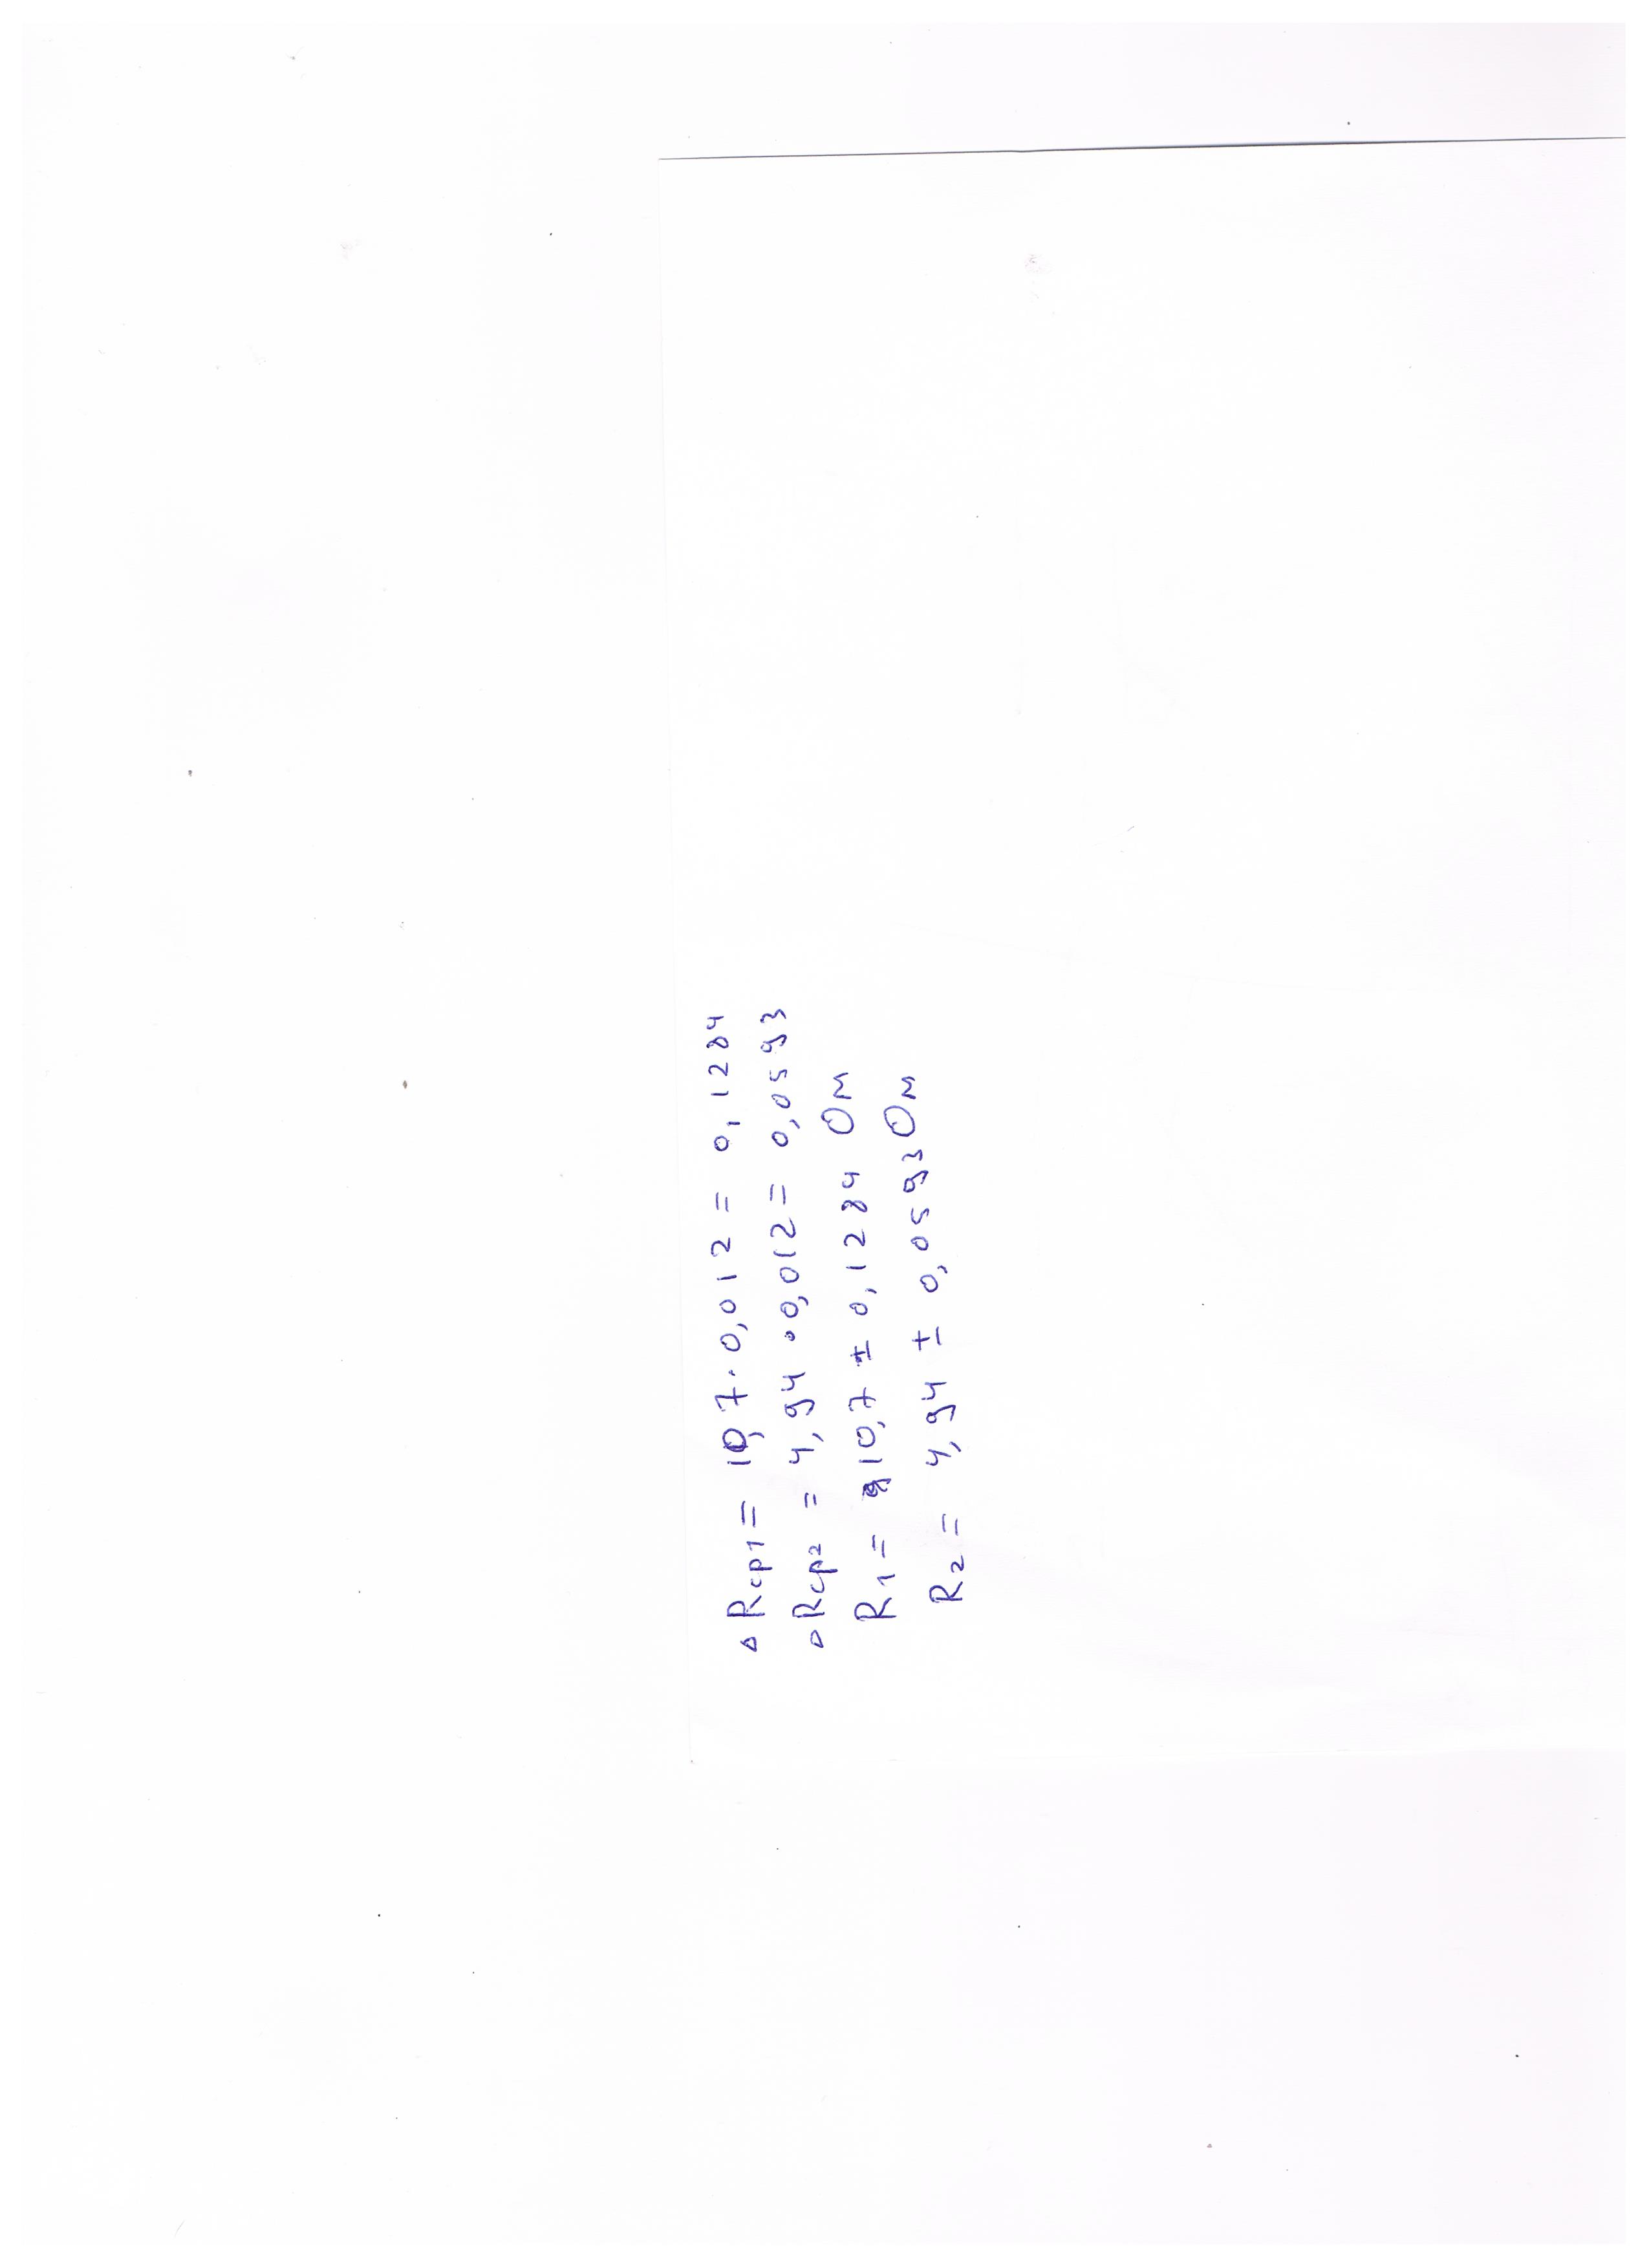 △Rср1 = 10,7·0,012 = 0,1284
△Rср2 = 4,94·0,012 = 0,0593
R1 = 10,7 ± 0,1284 Ом
R2 = 4,94 ± 0,0593 Ом